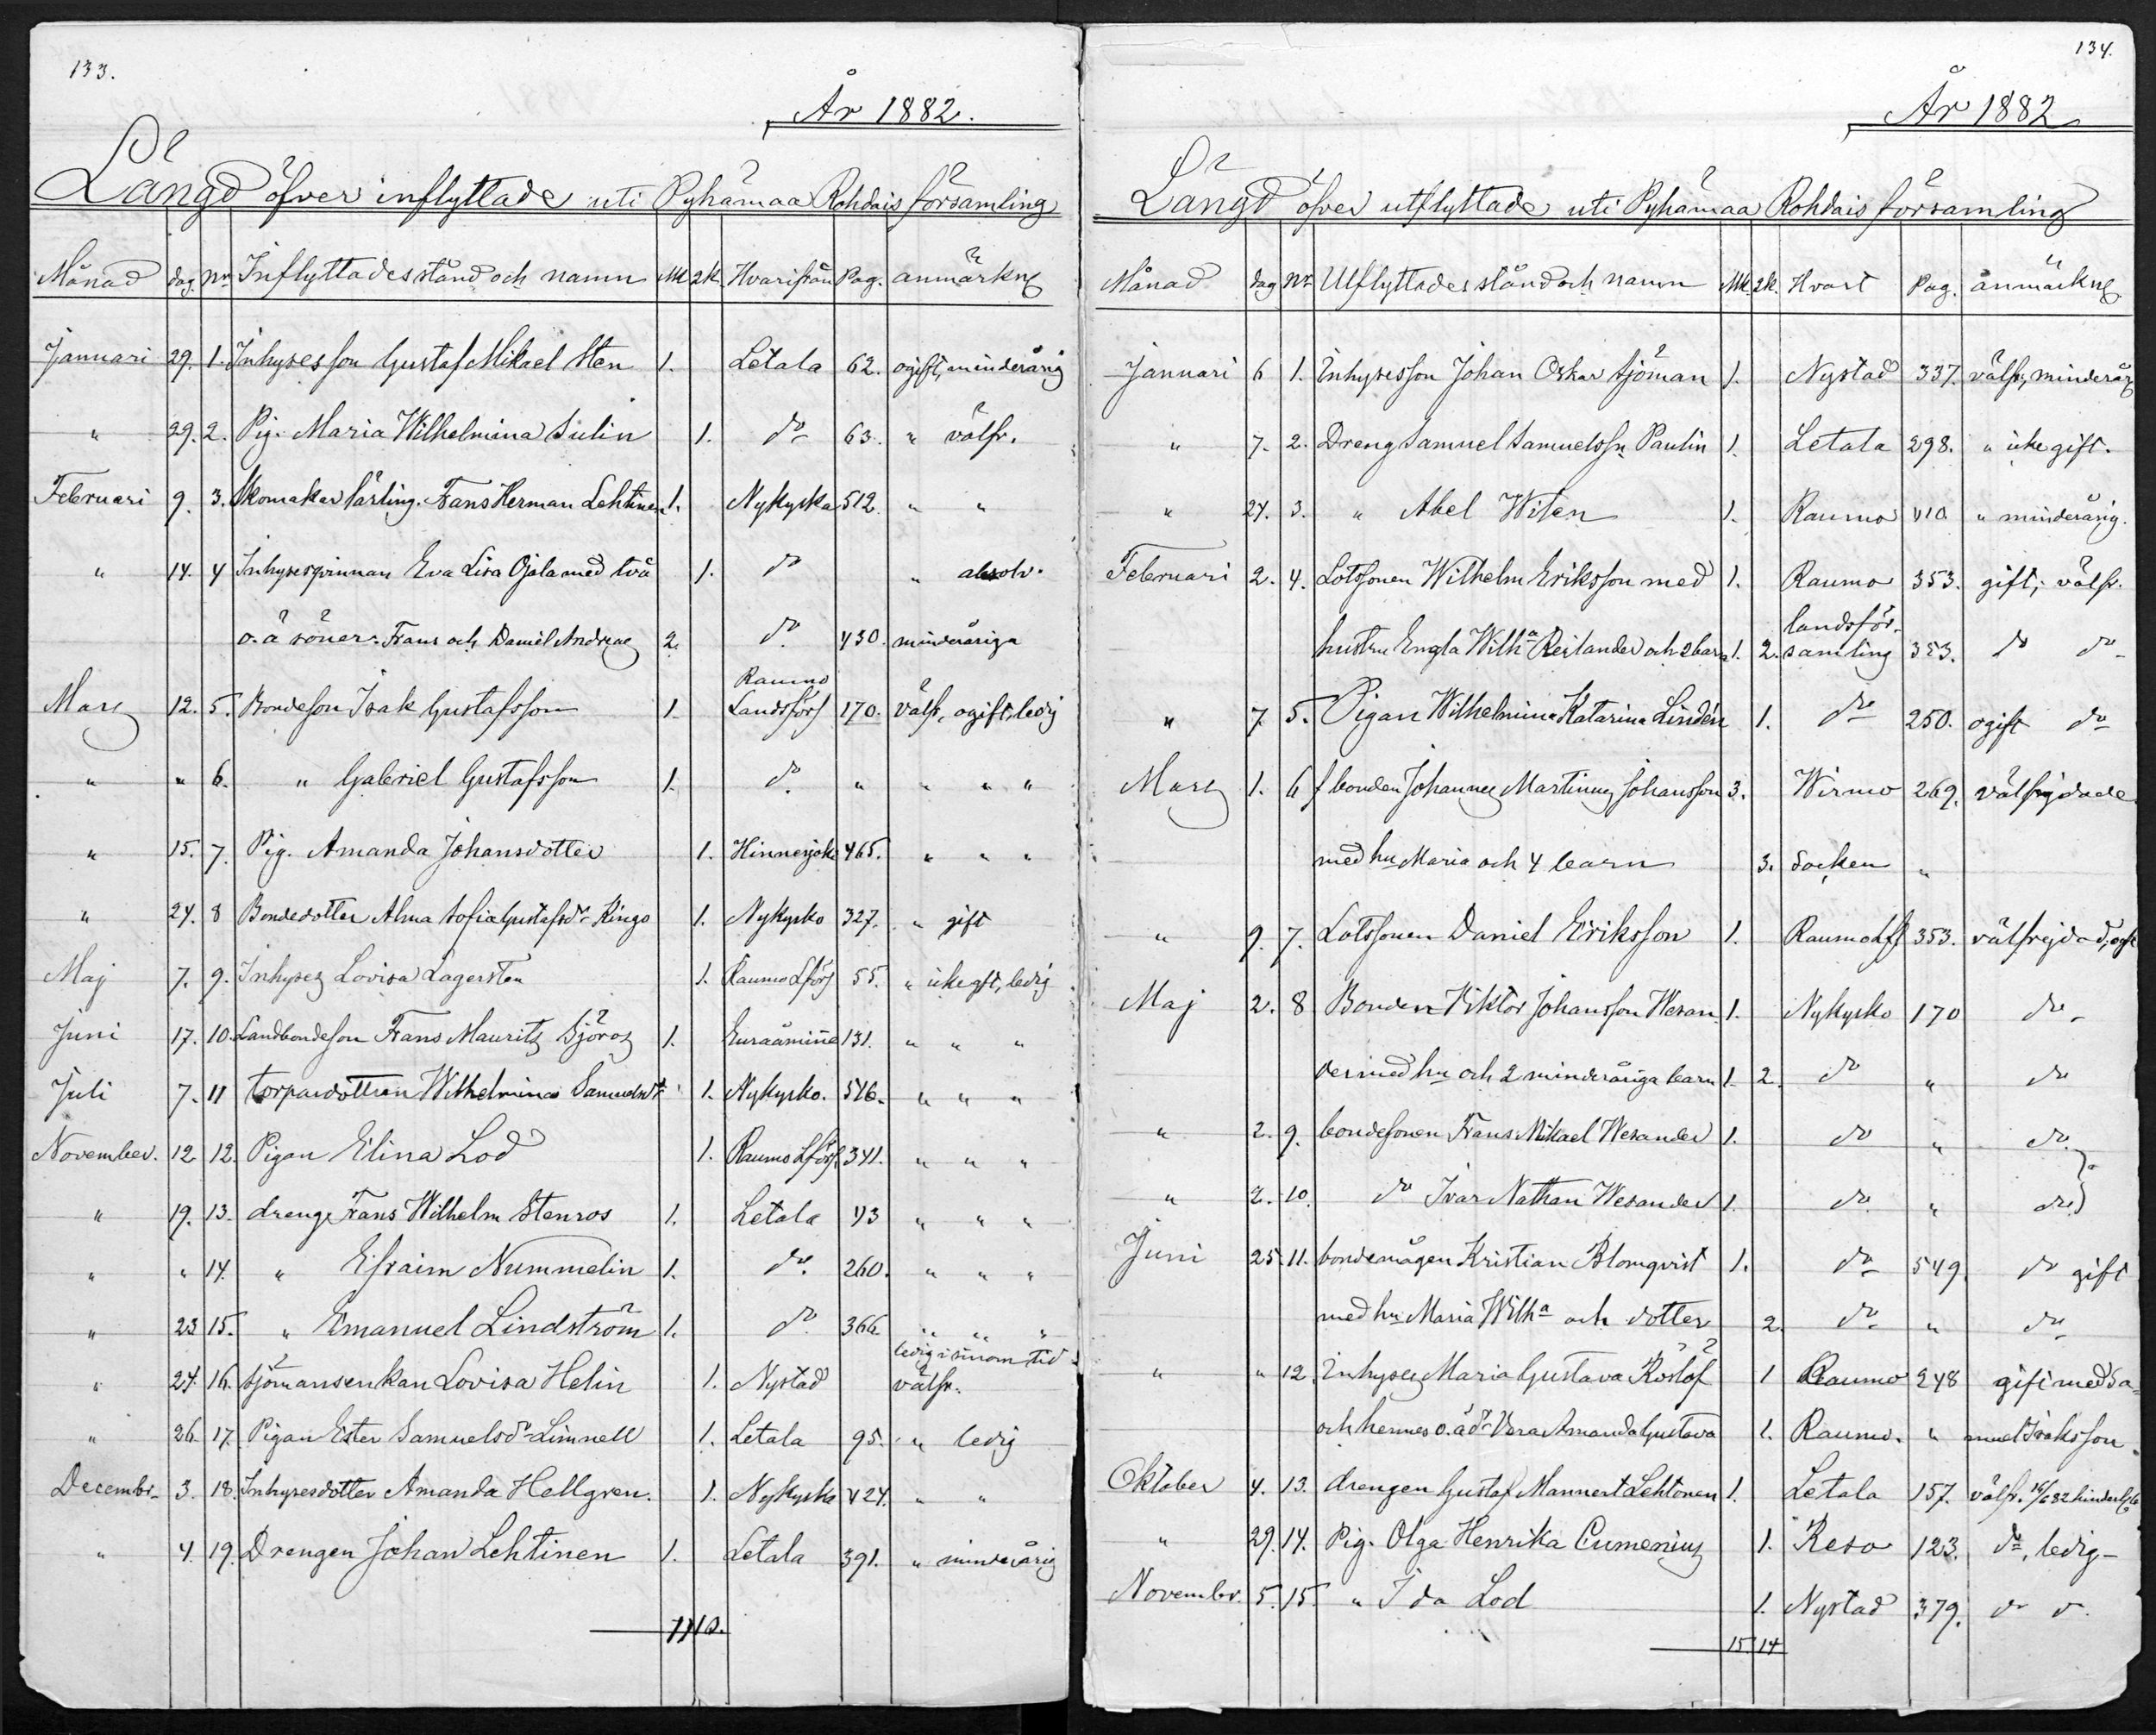 133.
År 1882.
Längd öfver inflyttade uti Pyhämaa Rohdais församling
Månad dag. Nr Inflyttades stånd och namn Mk 2k. Hvarifrån Pag. anmärkng
Januari 29. 1. Inhysesson Gustaf Mikael Sten 1. Letala 62. ogift, minderårig
" 29. 2. Pig. Maria Wilhelmina Sulin 1. do 63. " välfr.
Februari 9. 3. Skomakar lärling. Frans Herman Lehtinen 1. Nykyrka 512. " "
" 14. 4 Inhysesqvinnan Eva Lisa Ojala med två 1. do " absolv.
o. ä söner: Frans och Daniel Andreas 2. do 430. minderåriga
Raumo
Mars 12. 5. Bondeson Isak Gustafsson 1. Landsförs 170. välfr, ogift, ledig
" " 6. " Gabriel Gustafsson 1. do " " " "
" 15. 7. Pig. Amanda Johansdotter 1. Hinnerjoki 465. " " "
" 24. 8 Bondedotter Alma Sofia Gustafsdr Kingo 1. Nykyrko 327. " gift
Maj 7. 9. Inhyses Lovisa Lagersten 1. Raumo Lförs 55. " icke gft, ledig
Juni 17. 10. Landbondeson Frans Mauritz Sjöros 1. Euraåminne 131. " " "
Juli 7. 11 torparedottren Wilhelmina Samuelsdt 1. Nykyrko. 516. " " "
November. 12 12. Pigan Elina Lod 1. Raumo Lförs 341. " " "
" 19. 13. dreng Frans Wilhelm Stenros 1. Letala 43 " " "
" " 14. " Efraim Nummelin 1. do. 260. " " "
" 23 15. " Emanuel Lindström 1. do. 366 " " "
ledig i sinom tid
" 24 16. Sjömansenkan Lovisa Helin 1. Nystad välfr.
" 26. 17. Pigan Ester Samuelsdr Limnell 1. Letala 95. " ledig
Decembr. 3. 18. Inhysesdotter Amanda Hellgren. 1. Nykyrka 424. " "
" 4. 19. Drengen Johan Lehtinen 1. Letala 391. " minderårig
11 10.
134.
År 1882
Längd öfver utflyttade uti Pyhämaa Rohdais församling
Månad dag Nr. Utflyttades stånd och namn Mk. 2k. Hvart Pag. anmärkng.
Januari 6 1. Inhysesson Johan Oskar Sjöman 1. Nystad 337. välfr, minderårg
" 7. 2. Dreng Samuel Samuelssn Paulin 1. Letala 298. " icke gift.
" 24. 3. " Abel Witen 1. Raumo 410 " minderårig.
Februari 2. 4. Lotssonen Wilhelm Eriksson med 1. Raumo 353. gift, välfr.
landsför-
hustru Engla Wilha Reilander och 2 barn 1. 2. samling 353. do do
" 7 5. Pigan Wilhelmina Katarina Lindén 1. do 250. ogift do
Mars 1. 6 f bonden Johannes Martinus Johansson 3. Wirmo 269. välfrejdade
med hu Maria och 4 barn 3. Socken "
" 9. 7. Lotssonen Daniel Eriksson 1. Raumo Lfs 353. välfrejdad, ogft
Maj 2. 8 Bonden Viktor Johansson Wesan 1. Nykyrko 170 do
der med hu och 2 minderåriga barn 1. 2. do " do
" 2. 9. bondesonen Frans Mikael Wesander 1. do " do.
" 2. 10. do Ivar Nathan Wesander 1. do. " do
Juni 25. 11. bondemågen Kristian Blomqvist 1. do 549. do gift
med hu Maria Wilha och dotter 2. do " do
" " 12. Inhyses Maria Gustava Roslöf 1 Raumo 248 gift med Sa-
och hennes o. ä dr Vera Amanda Gustava 1. Raumo. " muel Isaksson.
Oktober 4. 13. drengen Gustaf Mannert Lehtonen 1. Letala 157. välfr. 16/6 82
" 29. 14. Pig. Olga Henrika Cumenius 1. Reso 123. do, ledig-
Novembr. 5. 15. " Ida Lod 1. Nystad 379. do do.
15. 14